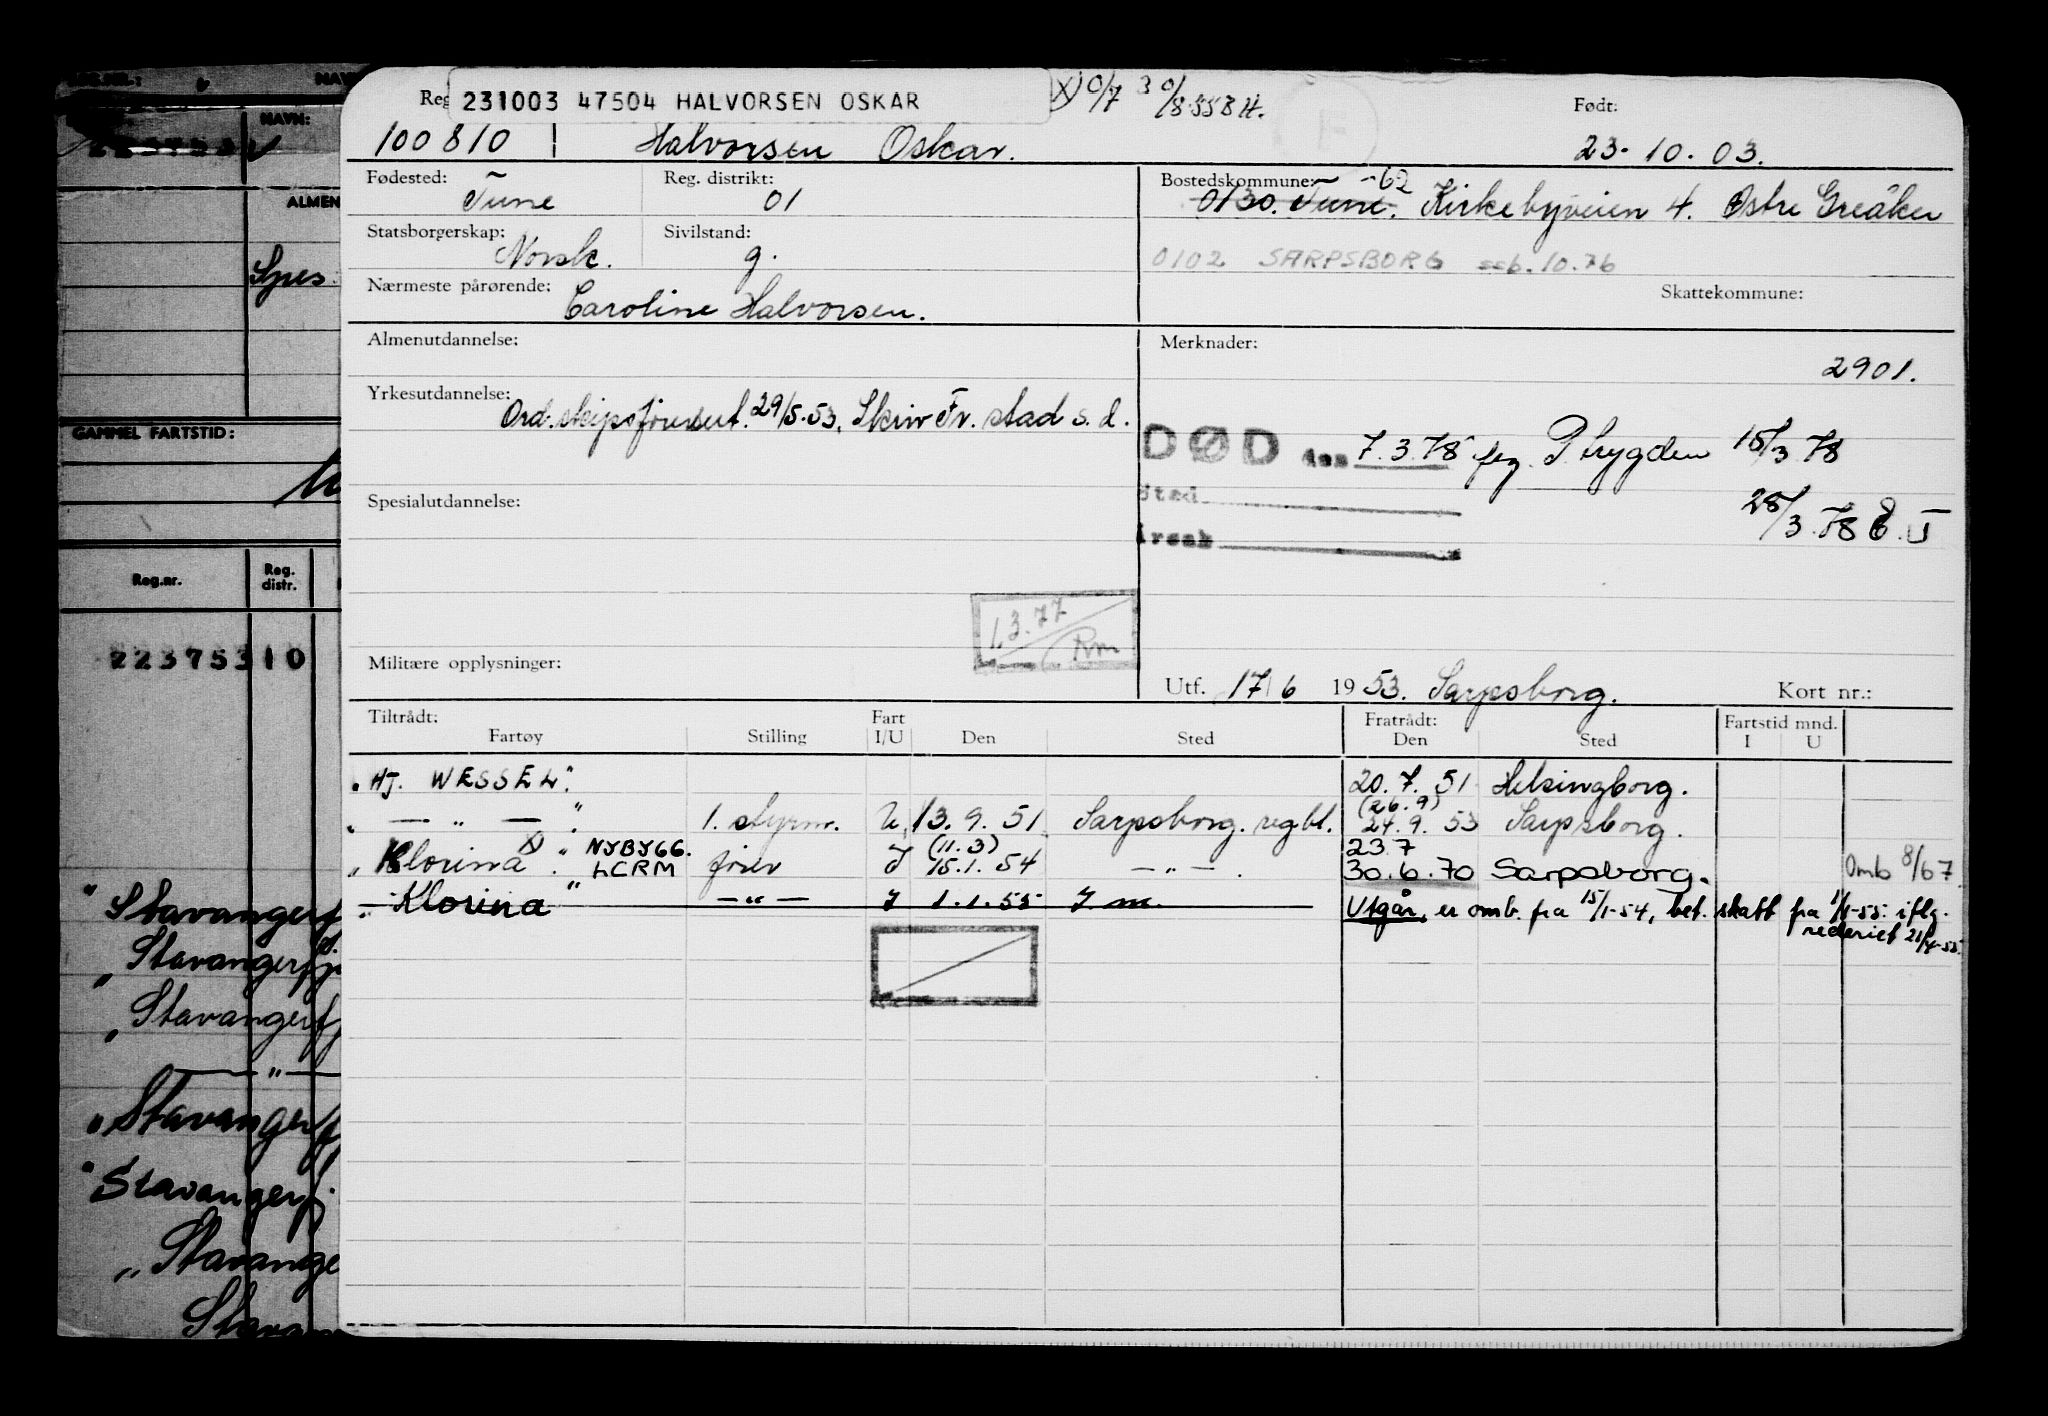 Reg 231003 47504 HALVORSEN OSKAR X) 0/7 30/8-55 BH. Født:
100810 Halvorsen Oskar. 23-10.03.
Fødested: Tune Reg. distrikt: 01 Bostedskommune: 0130. Tune. -62 Kirkebyveien 4. Østre Greåker
Statsborgerskap: Norsk. Sivilstand: g. 0102 SARPSBORG seb. 10.76
Nærmeste pårørende: Caroline Halvorsen. Skattekommune:
Almenutdannelse: Merknader:
2901.
Yrkesutdannelse: Ord. skipsførersert. 29/5-53, Skriv Fr. stad s.d.
DØD den 7.3.78 flg. P. trygden 15/3 78
Sted
Spesialutdannelse: 28/3.78
Årsak
1.3.77
Rm
Militære opplysninger:
Utf. 17/6 1953. Sarpsborg. Kort nr.:
Tiltrådt: Fart Fratrådt: Fartstid mnd.
Fartøy Stilling I/U Den Sted Den Sted I U
" Hj. WESSEL". 20.7.51 Helsingborg.
" — " — " 1. styrm. U 13.9.51 Sarpsborg. regbl. (26.9) 24.9.53 Sarpsborg.
" Klorina X) " NYBYGG. LCRM fører I (11.3) 15.1.54 — " — . 23.7 30.6.70 Sarpsborg. Omb 8/67
" Klorina " — " — I 1.1.55 I m. Utgår, er omb. fra 15/1-54, bet. skatt fra 1/1-55 iflg.
rederiet 21/4-55.
NAVN:
ALMEN
Spes
GAMMEL FARTSTID:
Reg.nr. Reg. distr.
22375310
" Stavangerf
" Stavangerfj
" Stavangerf
— " —
" Stavangerf
" Stavangerfj
" Stavange
Stavan